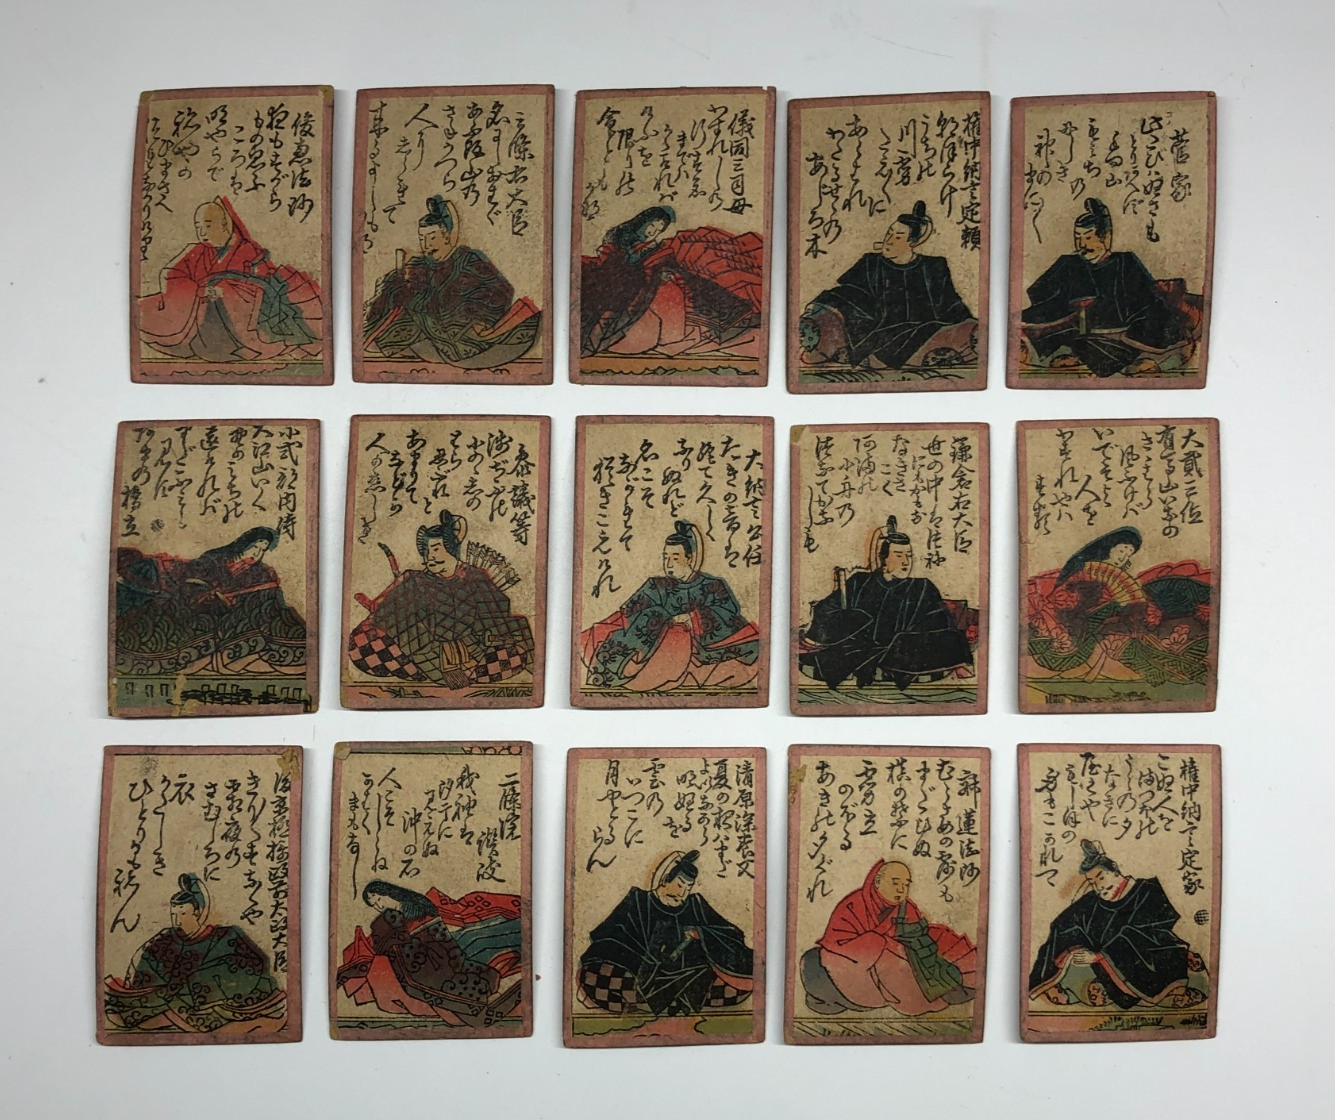 俊恵法師
夜もすがら
もの思ふ
ころは
明やらで
ねやの
ひまさへ
三條右大臣
名にしおはゞ
あふ坂山の
さねかつら
人に
しられで
儀同三司母
わすれじの
行末
までは
かたければ
けふを
限りの
命とも
権中納言定頼
朝ぼらけ
うぢの
川雰
たえ〴〵に
あらはれ
わたるせゞの
あじろ木
菅家
此たびはぬさも
とりあへず
手向山
もみぢ
の
にしき
神の
まに〳〵
小式部内侍
大江山いく
野のみちの
遠ければ
まだふみも
みず
天の
橋立
参議等
浅ぢふの
小野の
しの
はら
忍れど
あまりて
などか
人の恋しき
大納言公任
たきの音は
絶て久しく
なりぬれど
名こそ
ながれて
猶きこえけれ
鎌倉右大臣
世の中はつねに
もがもな
なぎさ
こぐ
あまの
小舟の
つなでかなしも
大貳三位
有馬山いなの
さゝはら
風ふけば
いでそよ
人を
わすれやは
する
後京極摂政前太政大臣
きり〴〵すなくや
霜夜の
さむしろに
衣
かたしき
ひとりかもねん
二條院
讃岐
我袖は
汐干に
みえぬ
沖の石
の
人こそしらね
かわく
まもなし
清原深養父
夏の夜はまだ
よひながら
明ぬるを
雲の
いづこに
月やどるらん
寂蓮法師
むらさめの露も
まだひぬ
槙の葉に
雰立
のぼる
あきの夕ぐれ
権中納言定家
こぬ人を
まつほの
うらの夕
なぎに
やくや
もしほの
身もこがれつゝ